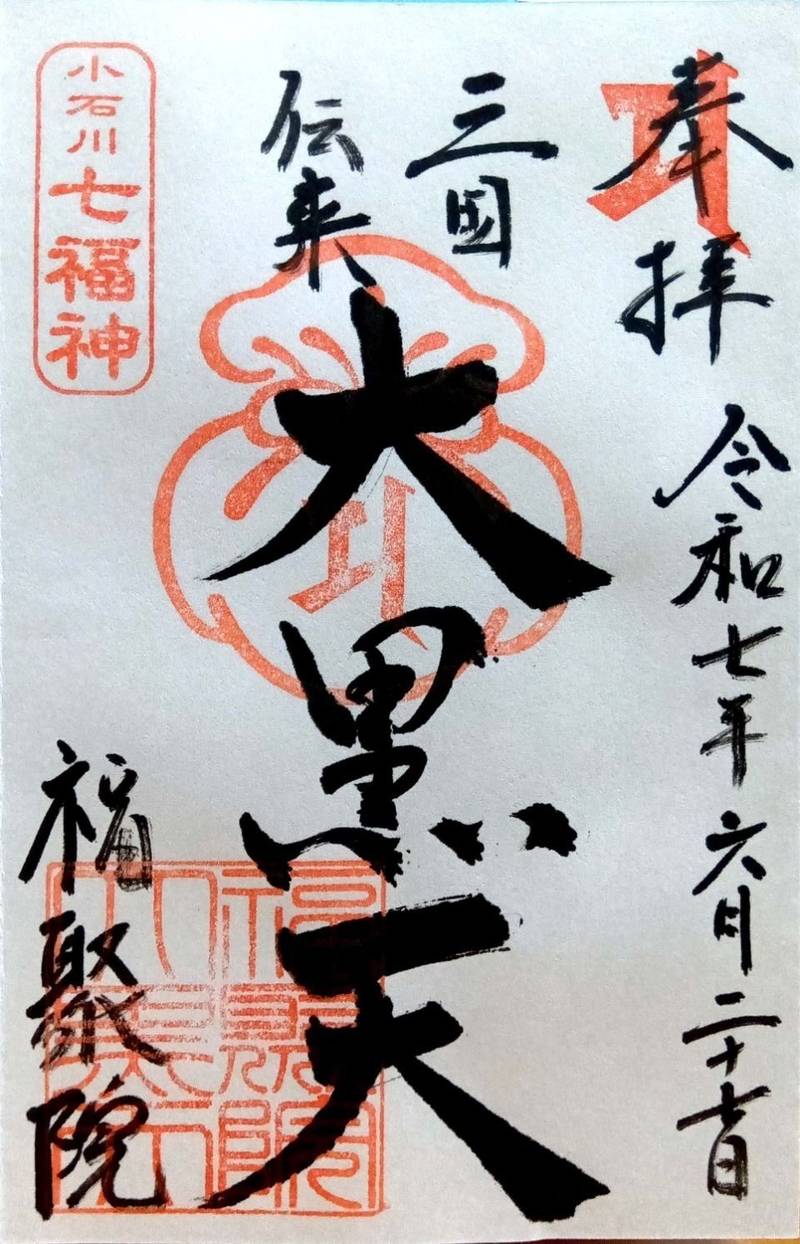 奉拝
令和七年六月二十七日
三国
伝来
大黒天
小石川七福神
福聚院
福聚院
大黒天